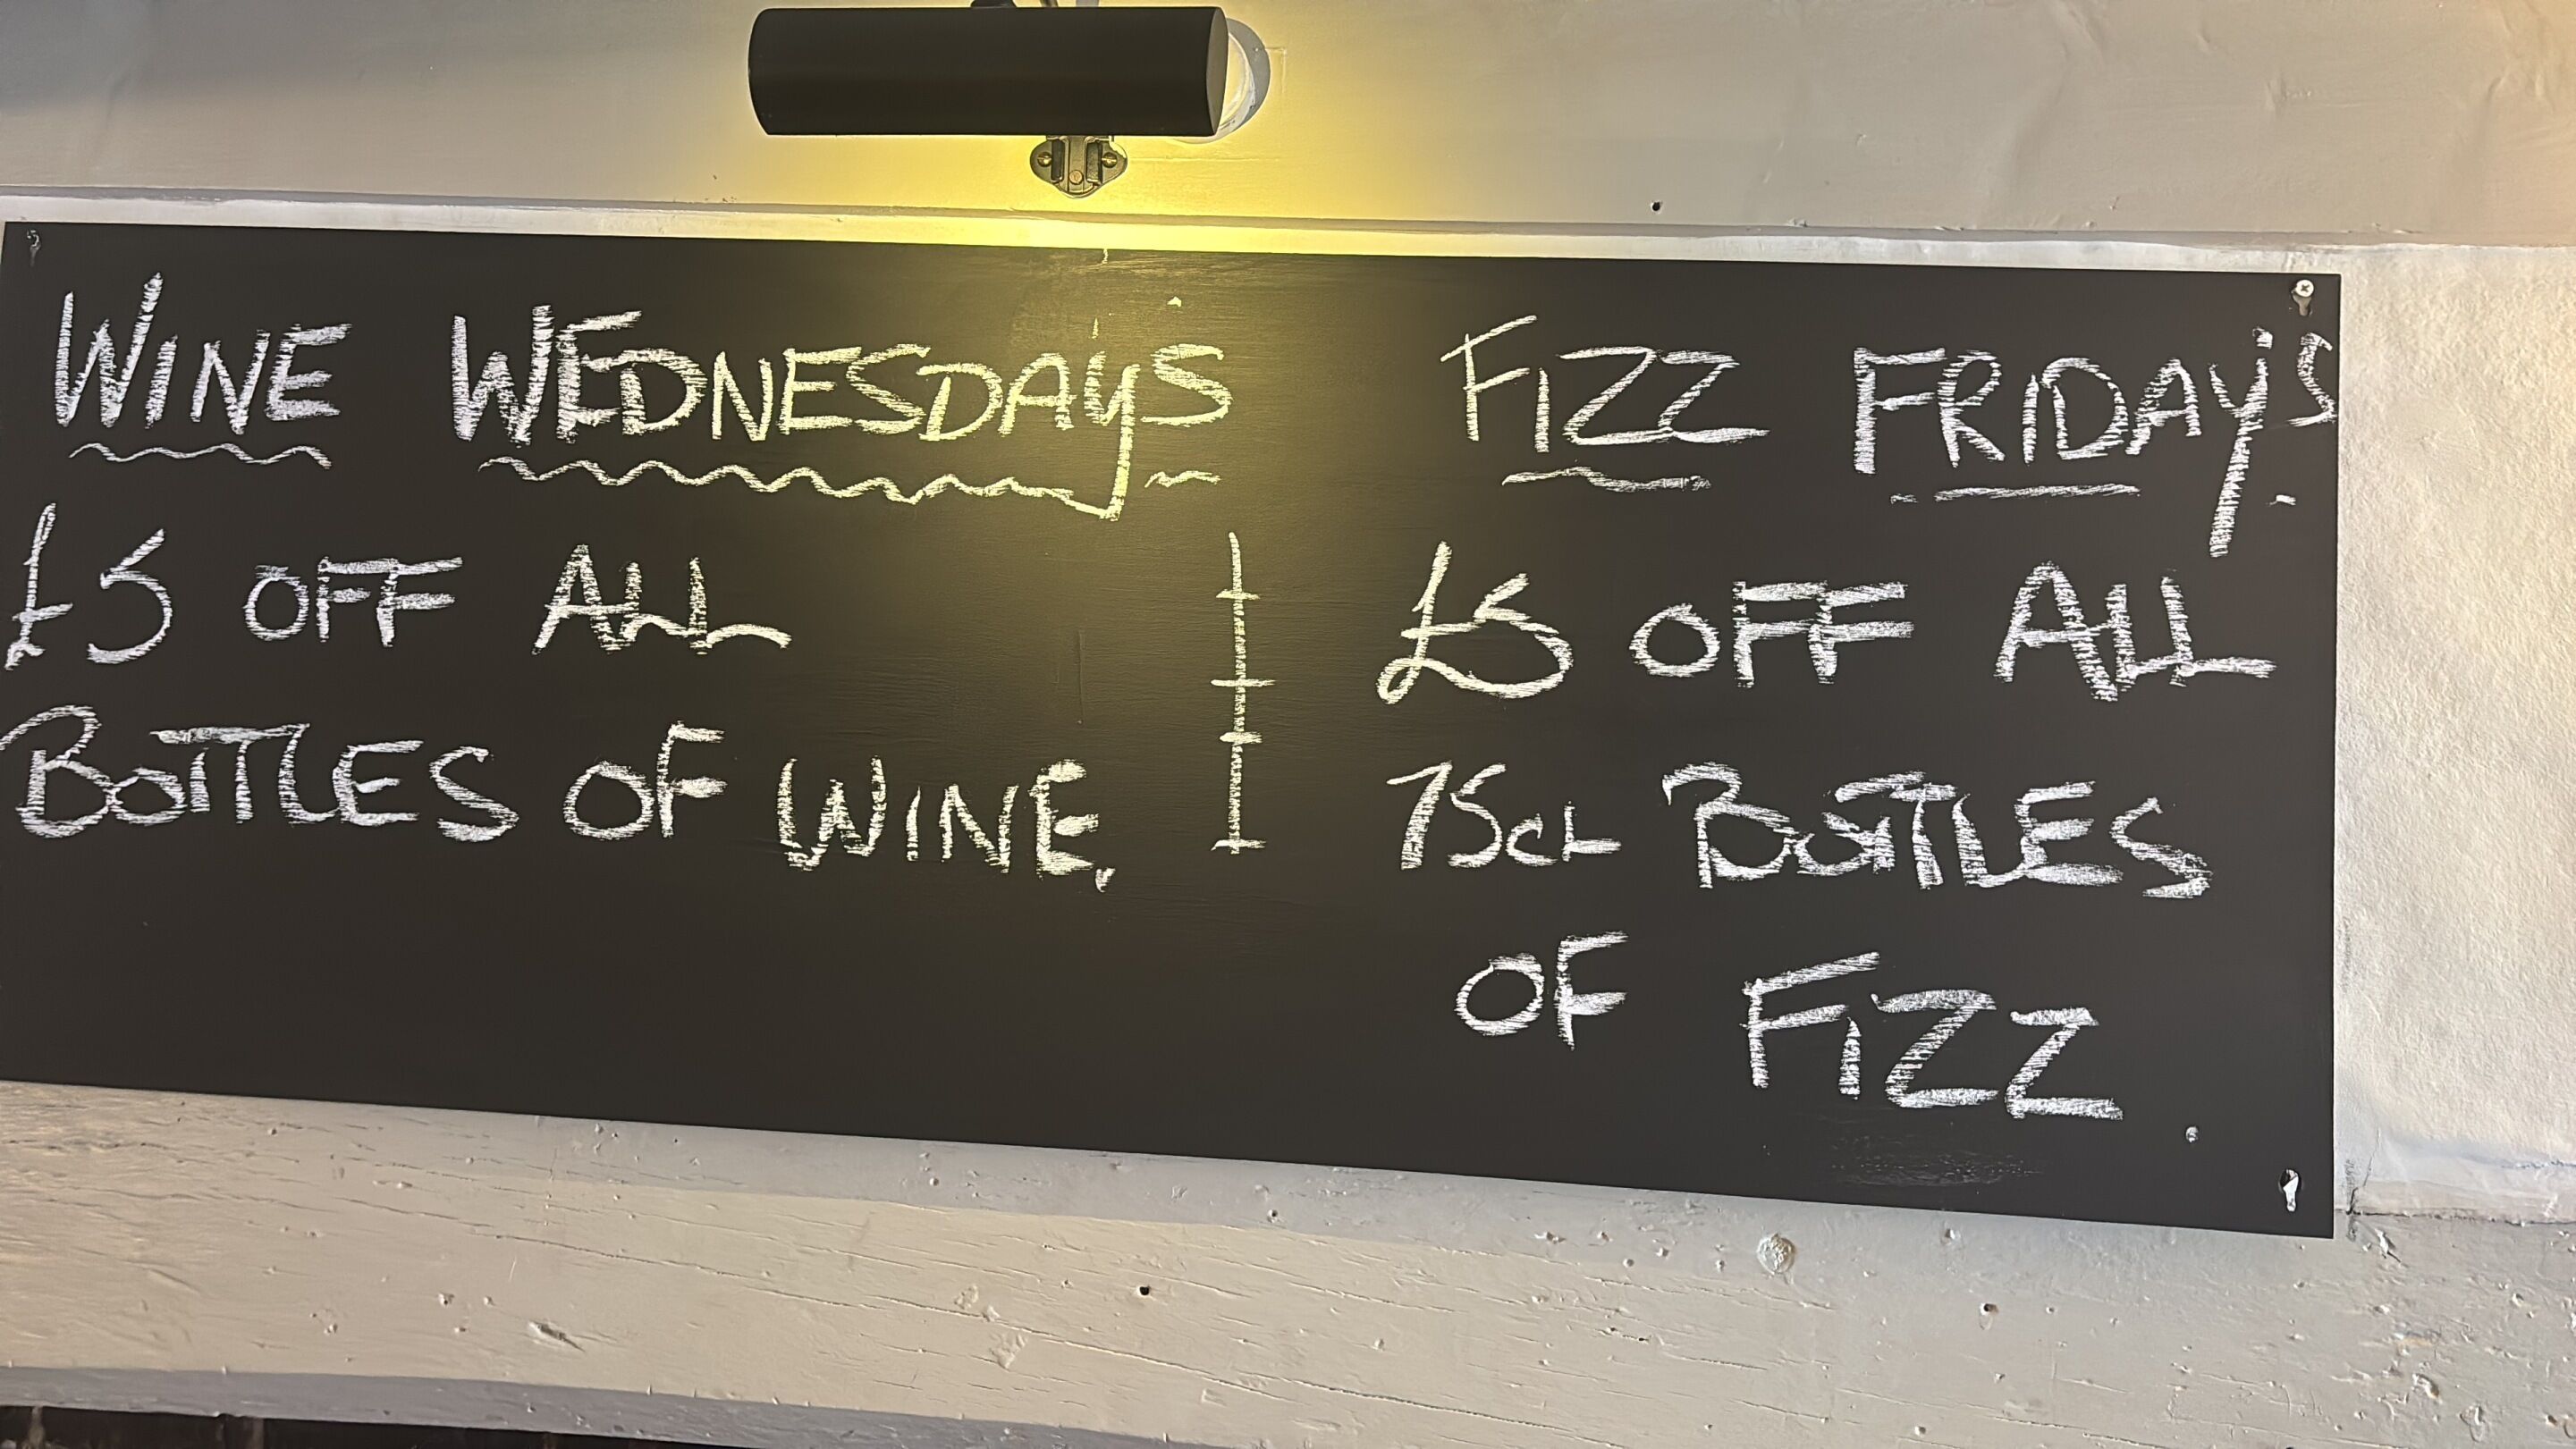 WINE WEDNESDAY'S
£5 OFF ALL
BOTTLES OF WINE.
FIZZ FRIDAY'S
£5 OFF ALL
75CL BOTTLES
OF FIZZ.